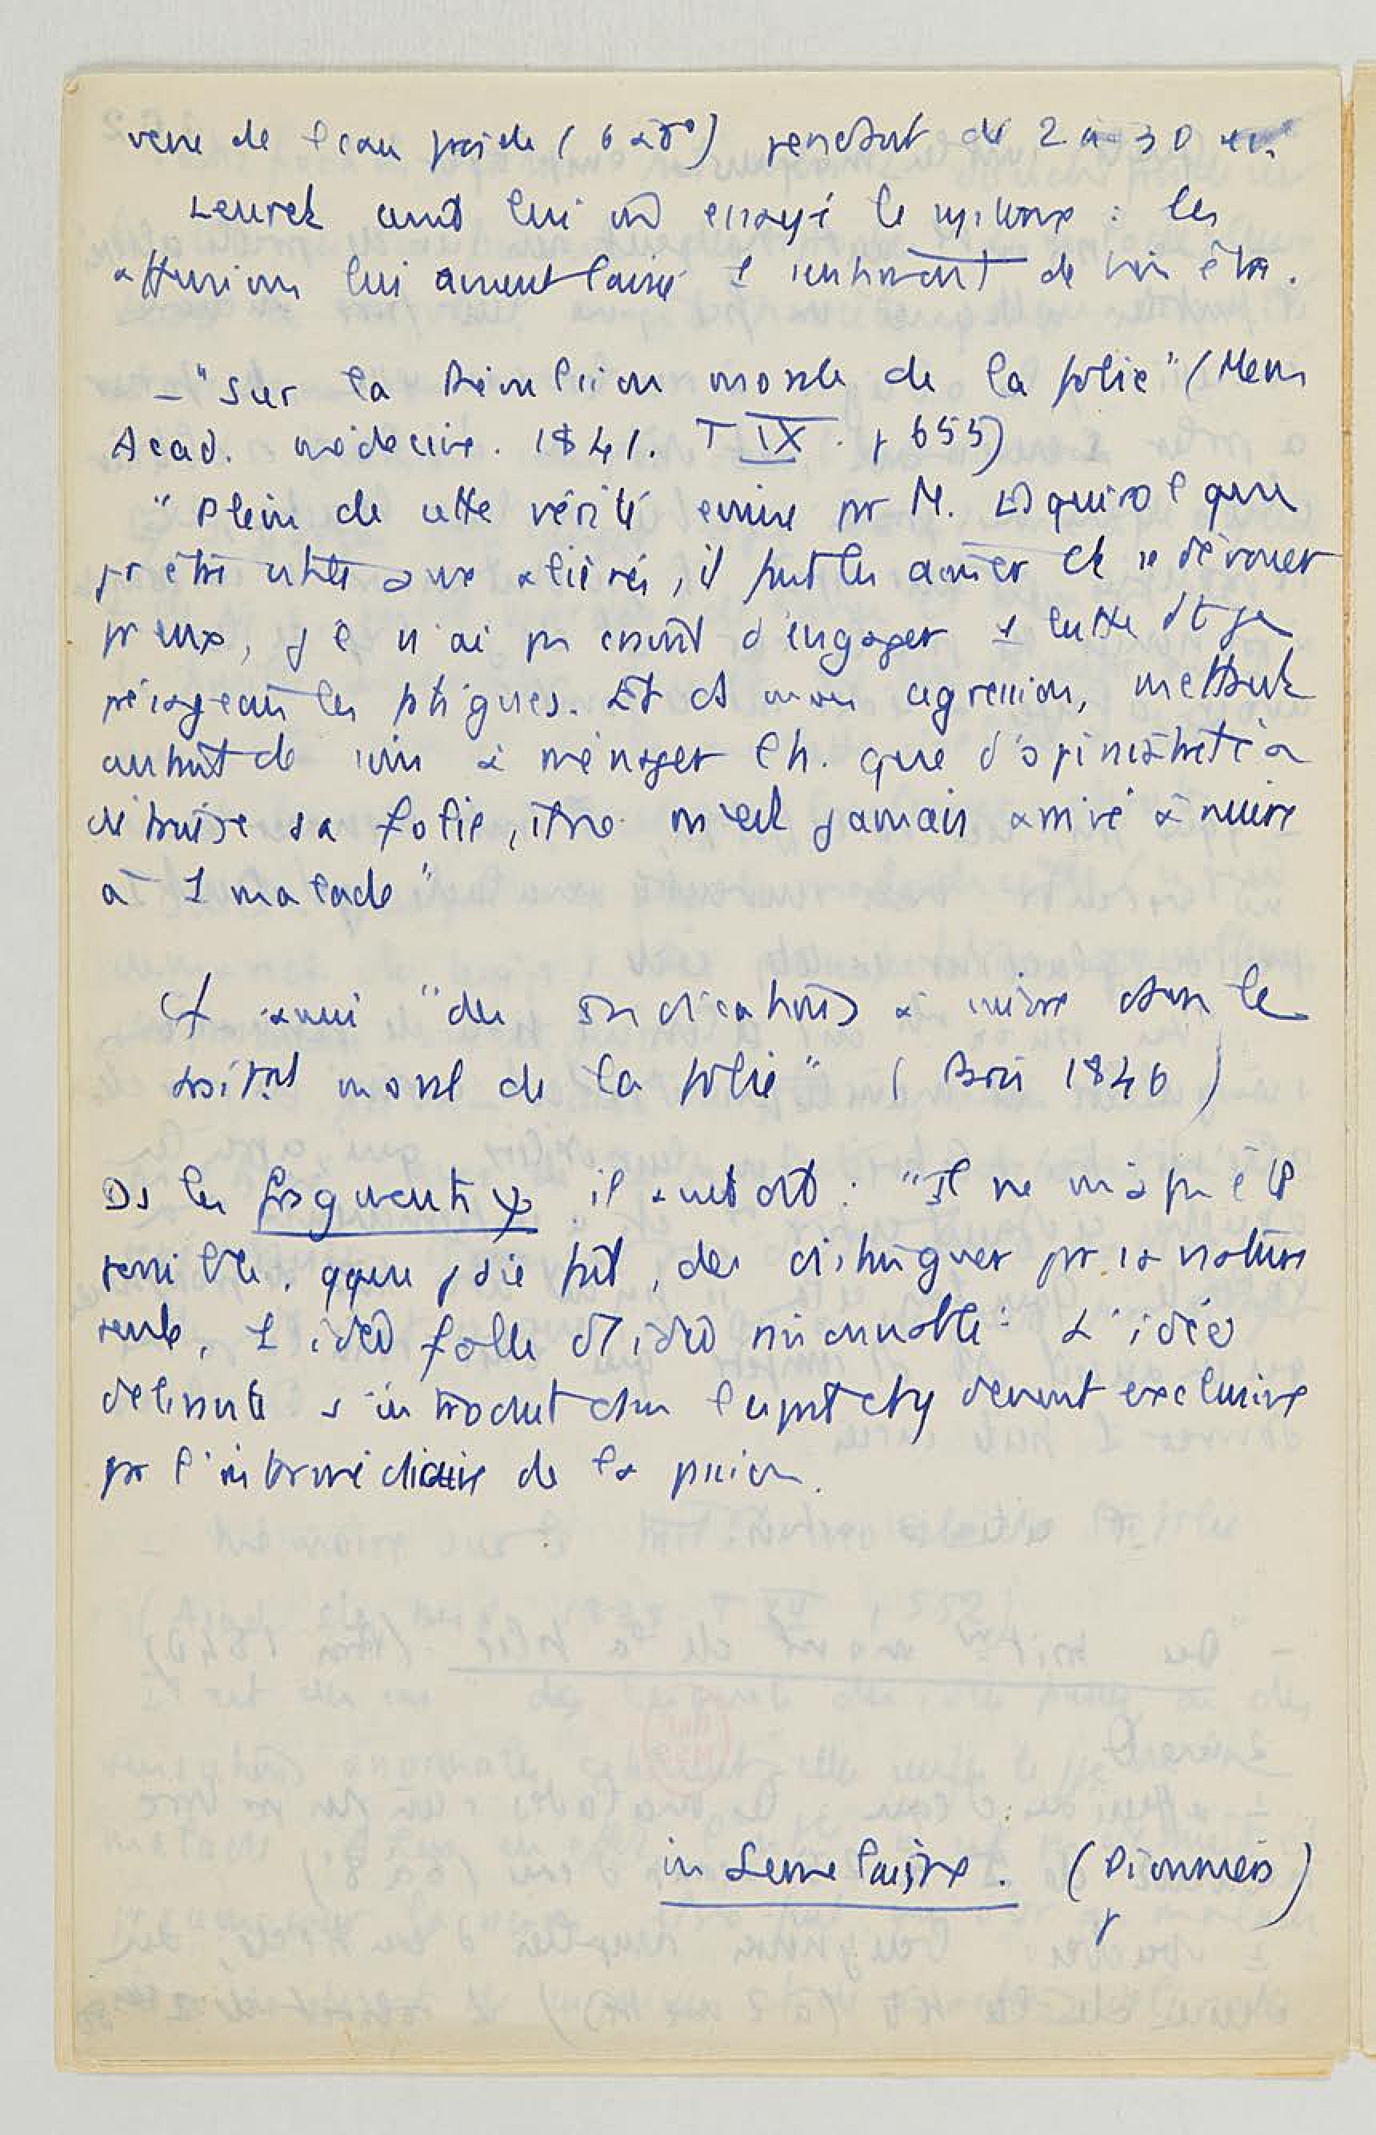 verse de l'eau froide (6 à 8°) pendant de 2 à 30
Leuret avait lui même essayé le : les
affusions lui avaient laissé 1 sentiment de bien être.
- "Sur la Révulsion morale de la folie" (Mem
Acad. médecine. 1841. T IX. p 655)
"Plein de cette vérité émise pr M. Esquirol que
pr être utile aux aliénés, il faut les aimer et se dévouer
pr eux, je n'ai pas craint d'engager 1 lutte
les fatigues. Et ds mon agression, mettant
autant de soin à ménager l'h. que d'opiniâtreté à
détruire sa folie, il ne m'est jamais arrivé à nuire
à 1 malade"
Cf aussi "des Indications à suivre dans le
trait.nt moral de la folie" (Paris 1846)
Ds les Fragments ψ il : "Il ne m'a pas été
possible, que j'aie fait, de distinguer pr sa nature
seule, 1 idée folle d'1 idée raisonnable. L'idée
délirante s'introduit dans l'esprit et y devient exclusive
pr l'intermédiaire de la passion.
in Semelaigne. (Pionniers)
p